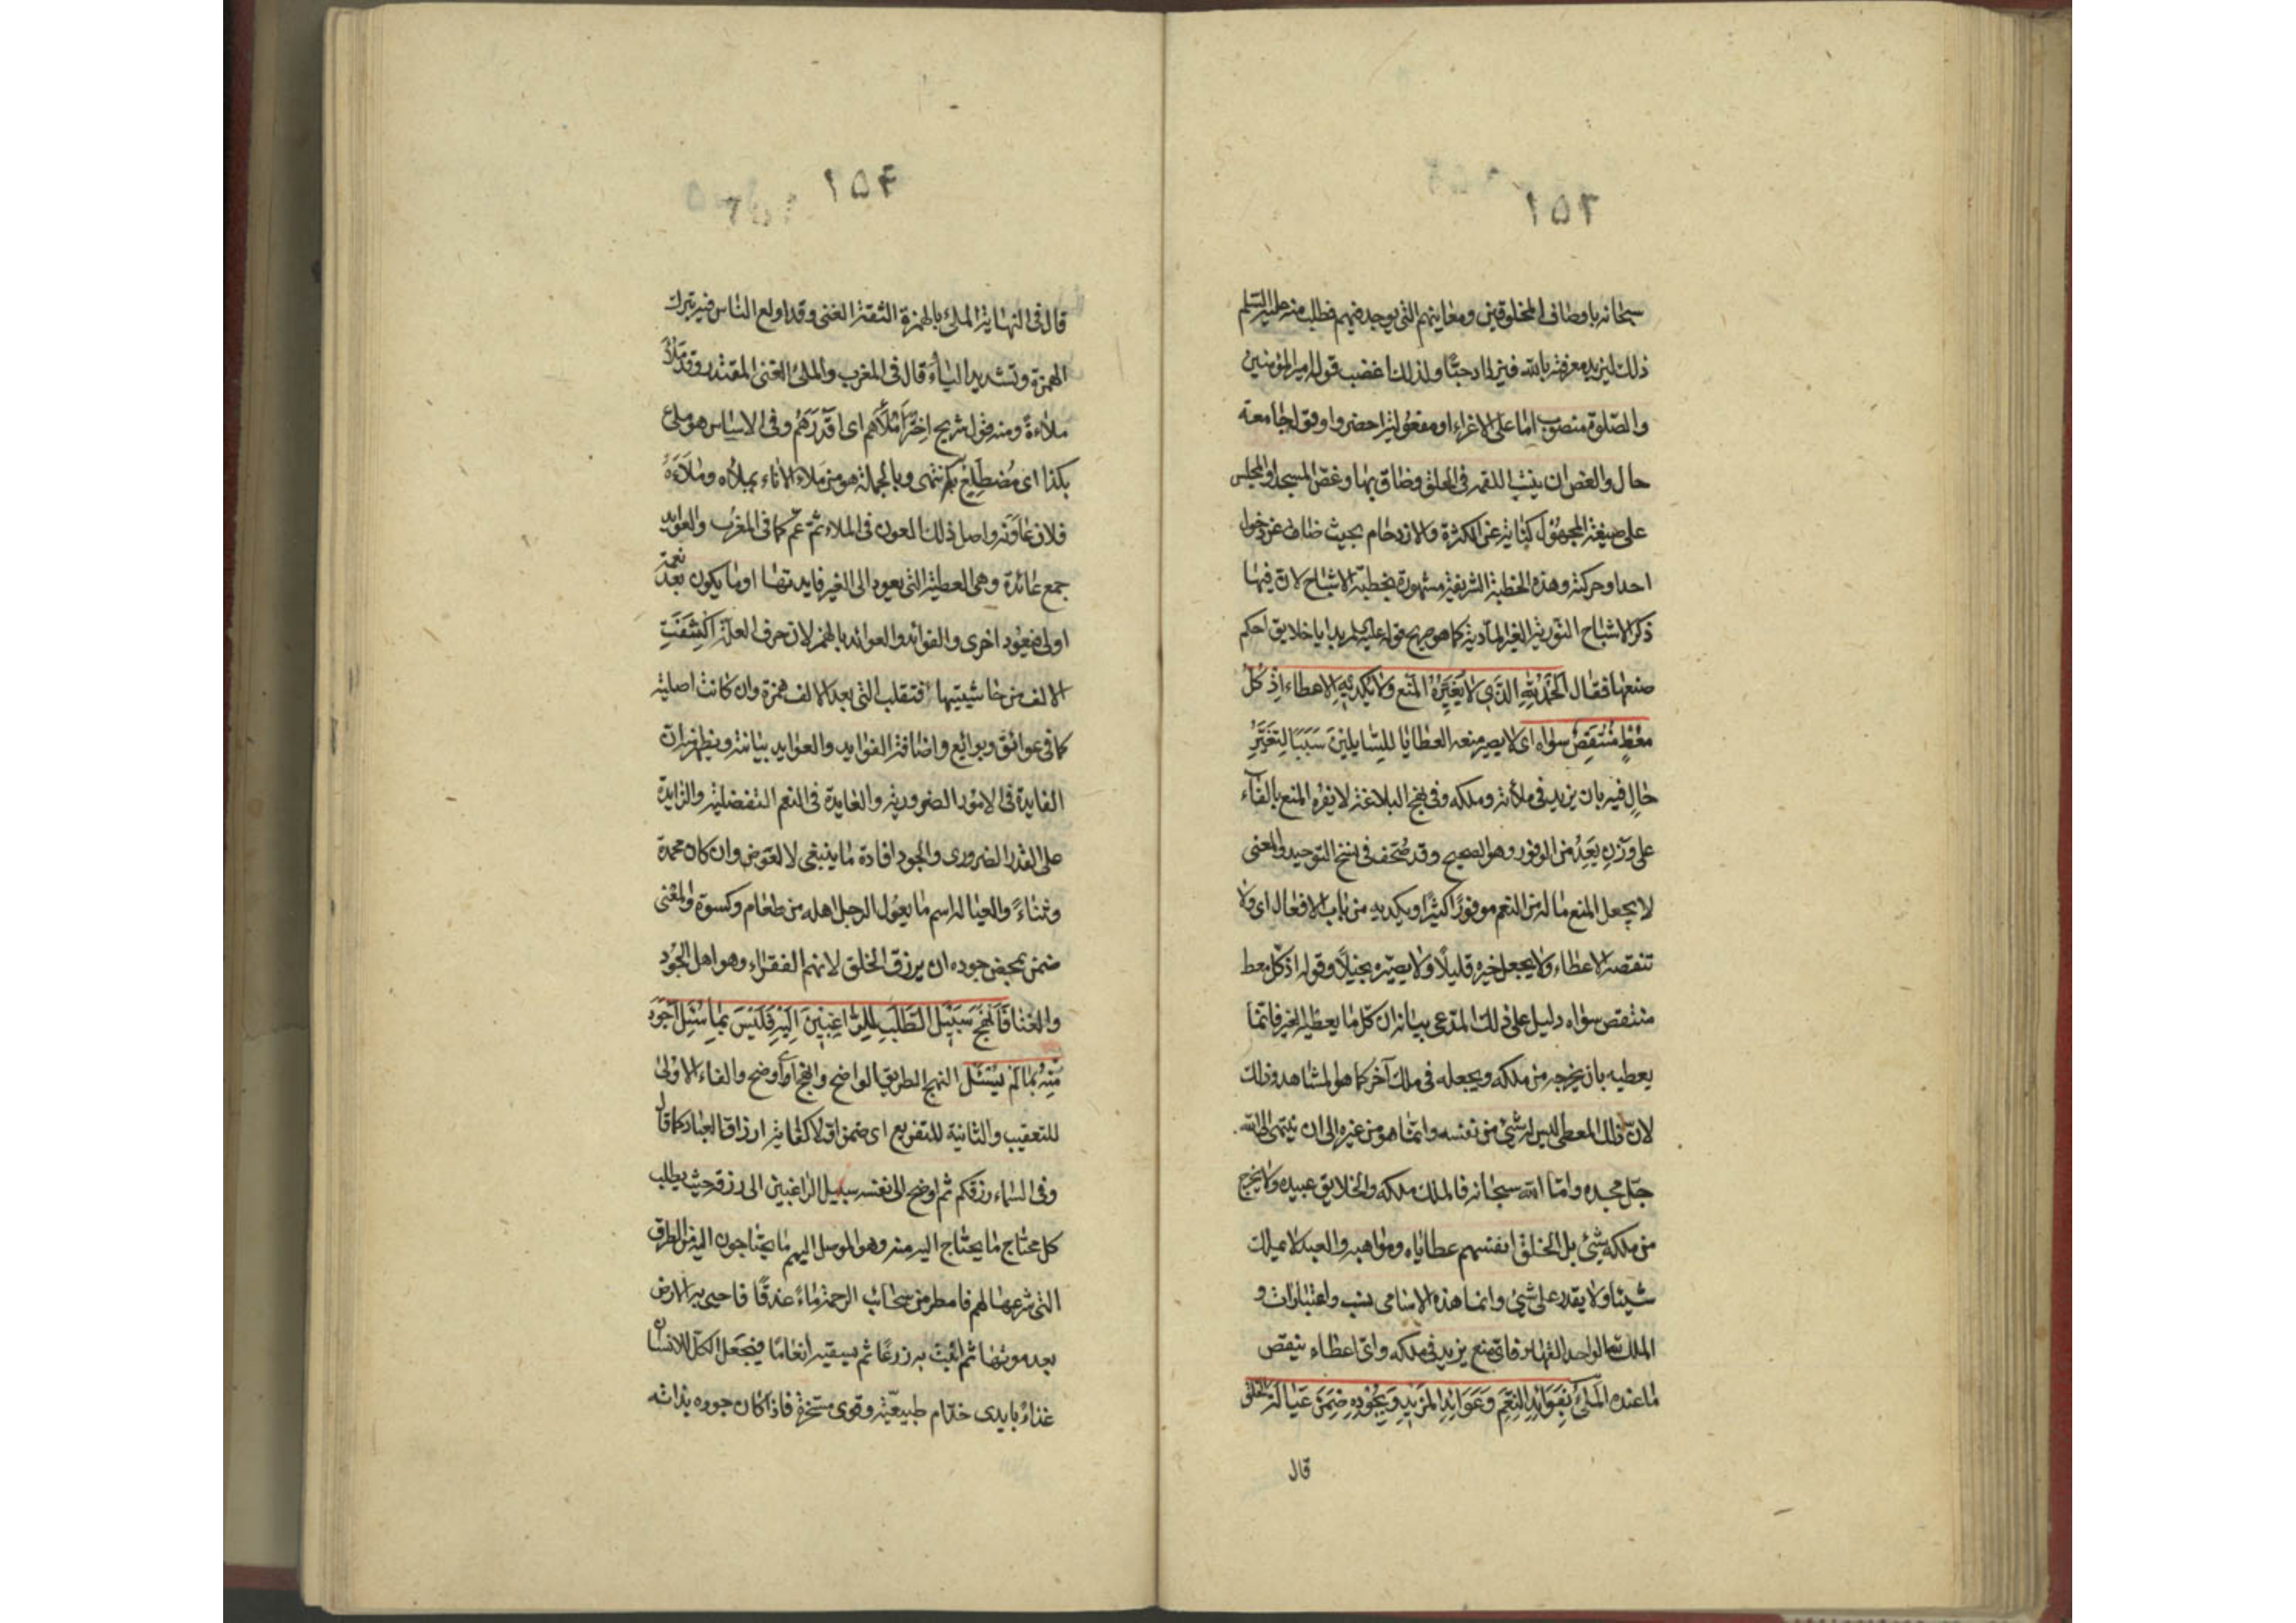 ٢٥١
سبحانه باوصاف المخلوقين ومعاينهم التي يوجد فيهم فطلب منه عليه السلم
ذلك ليزيد معرفته بالله فيزداد حبّا ولذلك اغضب قوله امير المؤمنين
والصّلوة منصوب امّا على الاغراء او مفعول لزاحضروا وقوله جامعة
حال والغص ان ينشب اللقمه في الحلق وضاق بها وغصّ المسجد او المجلس
على صيغة المجهول كناية عن الكثرة والازدحام بحيث ضاق عن دخول
احد او حركته وهذه الخطبة الشريفة مشهورة بخطبة الاشباح لان فيها
ذكر الاشباح النورية الغير المادية كما هو صريح قوله عليه السلم بدايا خلايق احكم
صنعها فقال الحَمْدُ لِلّهِ الَّذي لا يُغَيِّرُهُ المَنْع وَلا يُكديهِ الاعطاء اِذْ كُلُّ
مُعْطٍ مُنْتَقِصٌ سِوٰاه اى لا يصير منعه العطايا للسّايلينَ سَبَبًا لِتَغَيُّرِ
حٰالٍ فيه بان يزيد في ملأته وملكه وفي نهج البلاغة لا يفره المنع بالفٰاء
على وزْنِ يَعِدُ من الوفور وهو الصحيح وقد صُحّف في نسخ التوحيد والمعنى
لا يجعل المنع ما له من النعم موفورًا كثيرًا ويكديه من باب الافعال اى ولا
تنقصه الاعطاء ولا يجعل خيره قليلًا ولا يصيّره بخيلًا وقوله اذ كلّ معط
منتقص سواه دليل على ذلك المدّعى بيانه ان كلّ ما يعطيه الغير فانّما
يعطيه بان يخرجه من ملكه ويجعله في ملك آخر كما هو المشاهد وذلك
لان ذلك المعطى ليس له شئ من نفسه وانما هو من غيره الى ان ينتهى الى الله
جلّ مجده وامّا الله سبحانه فالملك ملكه والخلايق عبيده ولا يخرج
من ملكه شئ بل الخلق انفسهم عطاياه ومواهبه والعبد لا يملك
شيئا ولا يقدر على شئ وانما هذه الاسامى نسب واعتبارات و
الملك لله الواحد القهار فاى منع يزيد في ملكه واىّ اعطاء ينقص
ما عنده المَلِئُ بِفَوٰائِدِ النِّعَمِ وَعَوٰائِدِ المَزيدِ وَبِجُودِهِ ضَمِنَ عَيٰالَة الخلق
قال
٢٥٢
قال في النهاية الملئ بالهمزة الثقة الغنى وقد اولع الناس فيه بترك
الهمزة وتشديد الياء قال في المغرب والملئ الغنى المقتدر وقد ملُأَ
ملاءةً ومنه قول شريح اختَرْ اَمْلَأَهم اى اَقْدَرَهُمْ وفي الاساس هو ملئ
بكذا اى مُضطلِعٌ به انتهى وبالجملة هو من مَلاء الاناء يملأه ومَلَاَءَهُ
فلان عٰاوَنَه واصل ذلك العون في الملاء ثم عمّ كما في المغرب والعوايد
جمع عائدة وهي العطية التي يعود الى الغير فايدتها او ما يكون نعمة بعد
اولى فيعود اخرى والفوائد والعوائد بالهمز لان حرف العلّة اكْتَنَفَتِ
الالف من حاشيتيها فتقلب التي بعد الالف همزة وان كانت اصلية
كما في عوائق وبوائع واضافة الفوايد والعوايد بيانية ويظهر ان
الفايدة في الامور الضرورية والعايدة في النعم التفضلية والزايدة
على القدر الضرورى والجود افادة ما ينبغى لا لعوض وان كان محمدة
وثناءً والعيالة اسم ما يعول الرجل اهله من طعام وكسوة والمعنى
ضمن بمحض جوده ان يرزق الخلق لانهم الفقراء وهو اهل الجود
والغنا فَاَنْهَجَ سَبيْلَ الطَّلَبِ لِلرّٰاغِبينَ اِلَيْهِ فَلَيْسَ بِمٰا سُئِلَ اَجْوَدَ
مِنْهُ بِمٰا لَمْ يُسْئَلْ النهج الطريق الواضح وانهج اى اوضح والفاء الاولى
للتعقيب والثانية للتفريع اى ضمن اوّلا كفاية ارزاق العباد كما قال
وفي السماء رزقكم ثم اوضح الى نفسه سبيل الراغبين الى رزقه حيث يطلب
كل محتاج ما يحتاج اليه منه وهو الموصل اليهم ما يحتاجون اليه من الطرق
التي شرعها لهم فامطر من سحائب الرحمة ماءً غدقًا فاحيى به الارض
بعد موتها ثم انبت به زرعًا ثم يسقيه انعامًا فيجعل الكلّ للانسان
غذاءً بايدى خدّام طبيعيّة وقوى مسخرة فاذا كان جوده بذاته